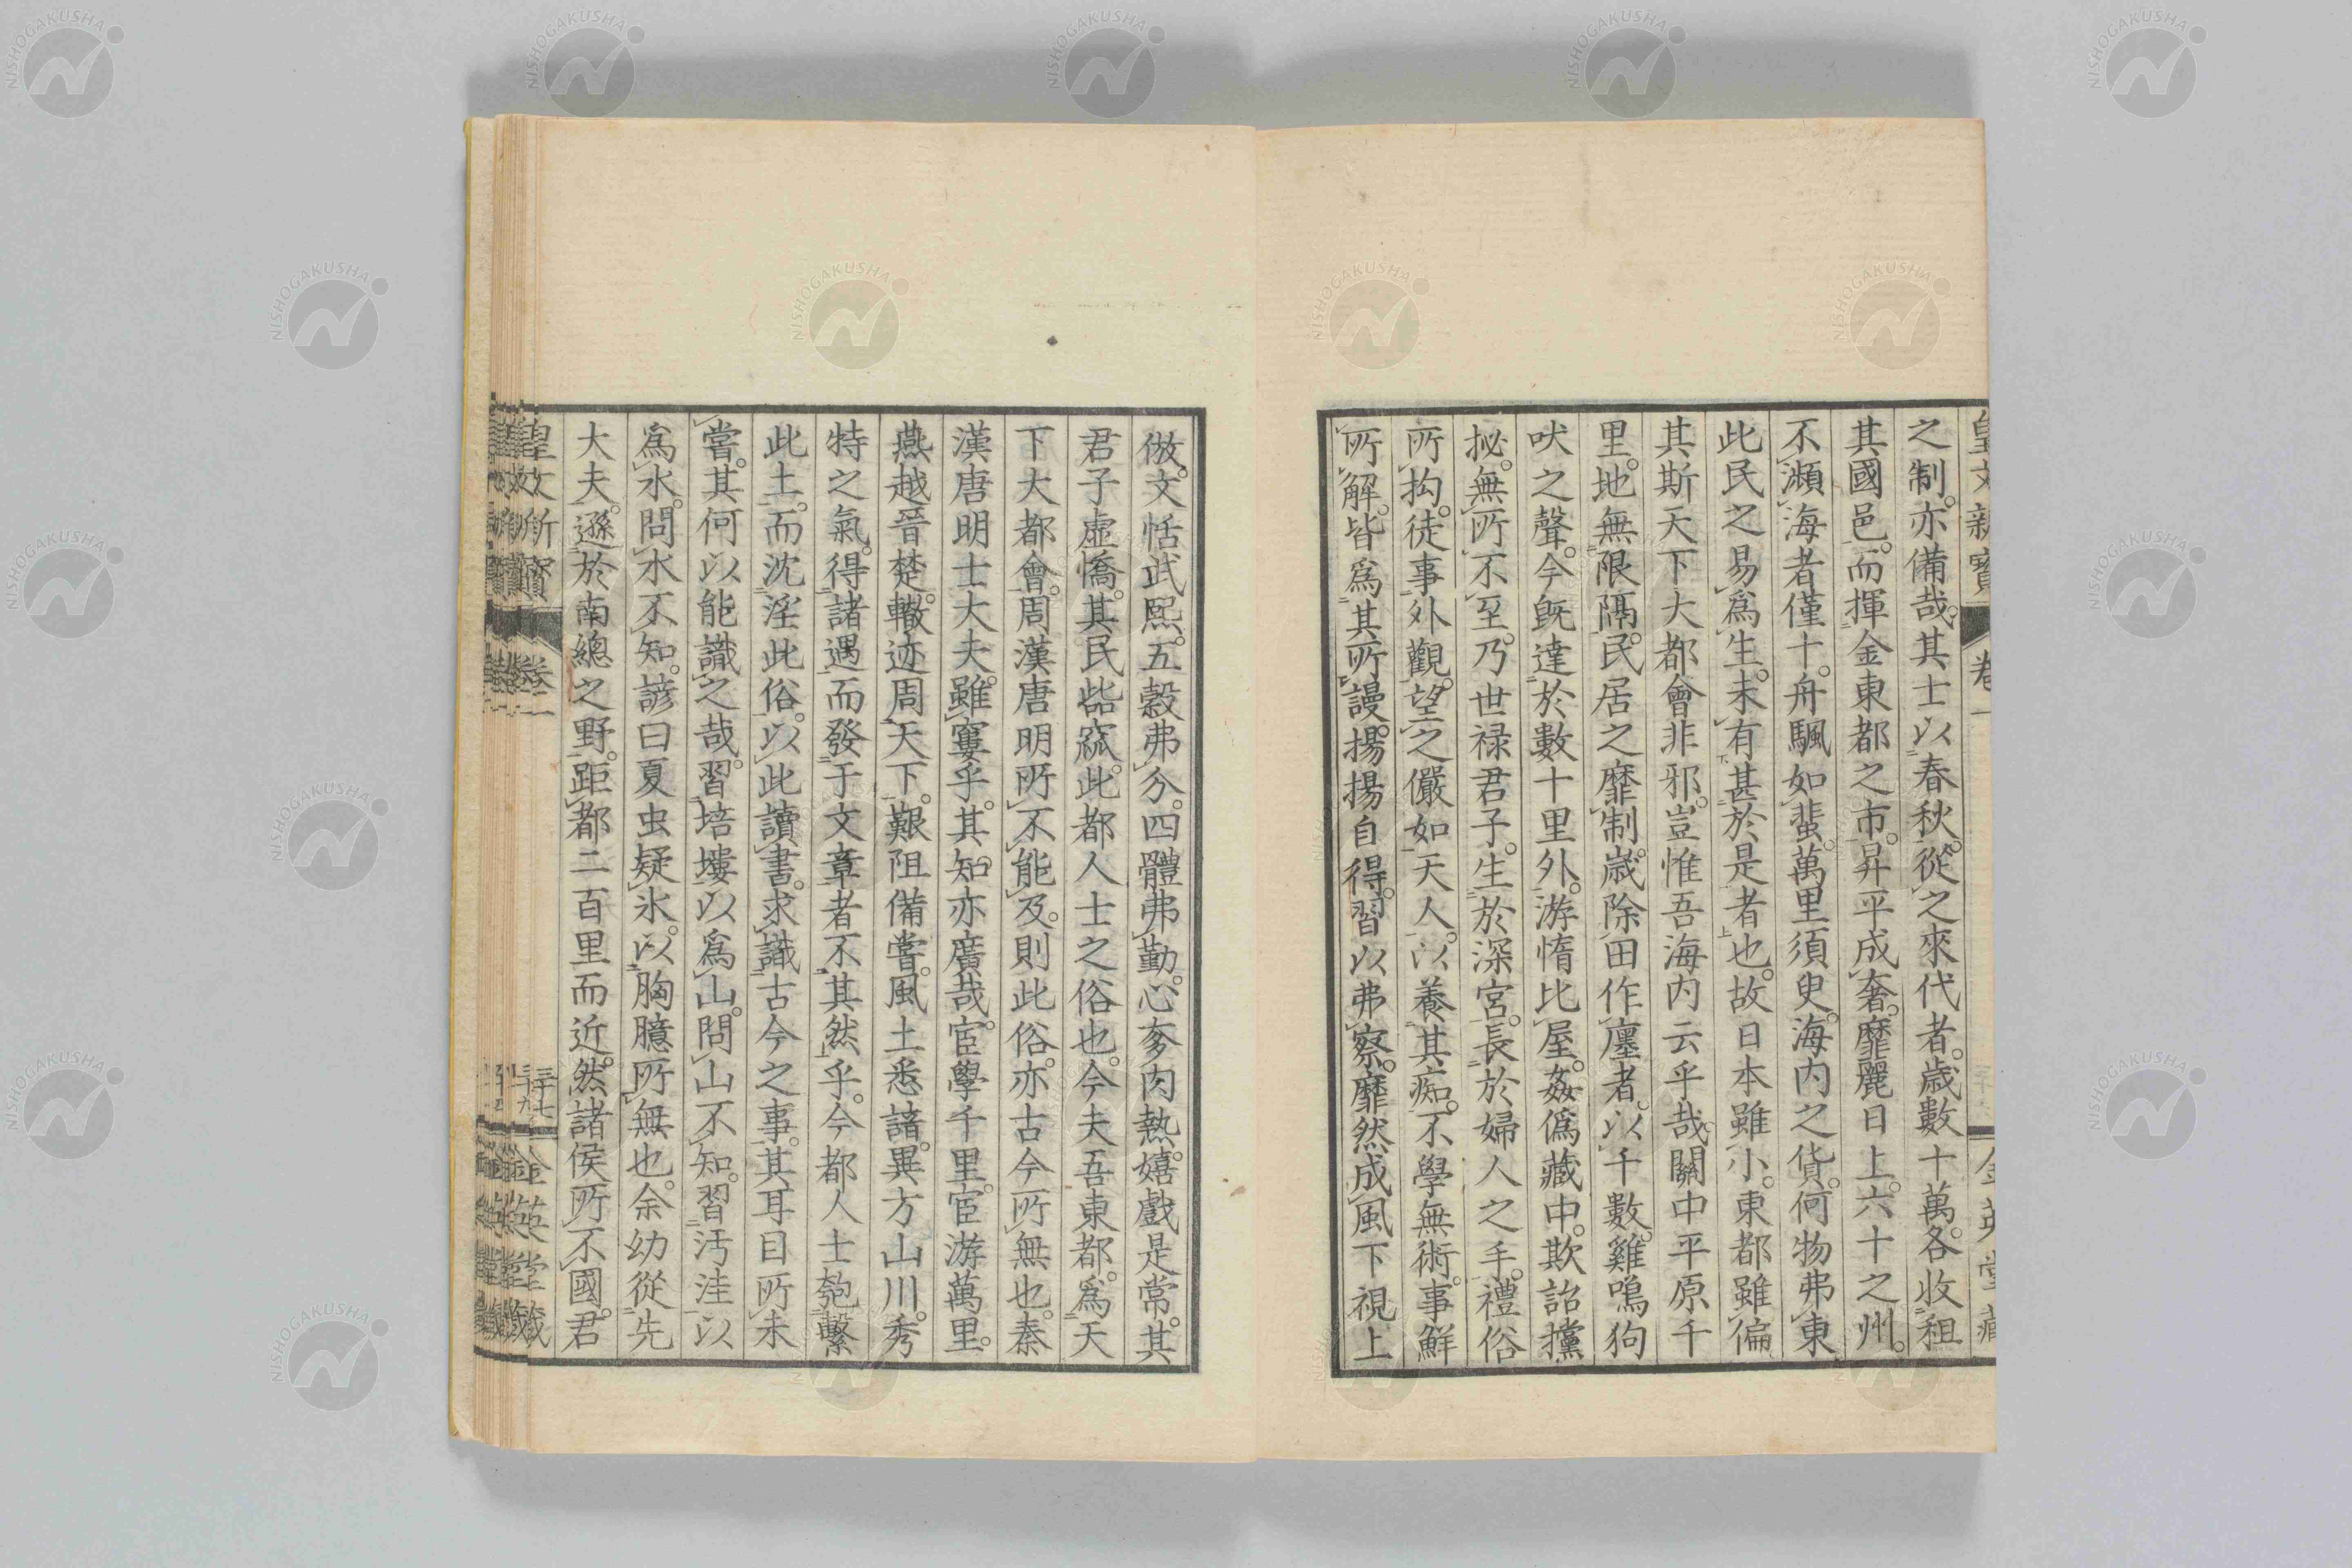 之制。亦備哉。其士以春秋。從之來代者。歲數十萬。各收租
其國邑。而揮金東都之市。昇平成奢。靡麗日上。六十之州。
不瀕海者僅十。舟颿如蜚。萬里須臾。海內之貨。何物弗東
此民之易為生。未有甚於是者也。故日本雖小。東都雖偏
其斯天下大都會非邪。豈惟吾海內云乎哉。關中平原千
里。地無限隔。民居之靡制。歲除田作廛者。以千數。雞鳴狗
吠之聲。今既達於數十里外。游惰比屋。姦偽藏中。欺詒攩
㧙。無所不至。乃世祿君子。生於深宮。長於婦人之手。禮俗
所拘。徒事外觀。望之儼如天人。以養其痴。不學無術。事鮮
所解。皆為其所謾。揚揚自得。習以弗察。靡然成風。下視上
倣。文恬武熙。五穀弗分。四體弗勤。心奓肉熱。嬉戲是常。其
君子虛憍。其民呰窳。此都人士之俗也。今夫吾東都。為天
下大都會。周漢唐明所不能及。則此俗。亦古今所無也。秦
漢唐明士大夫。雖窶乎。其知亦廣哉。宦學千里。宦游萬里。
燕越晉楚。轍迹周天下。艱阻備嘗。風土悉諸。異方山川。秀
特之氣。得諸遇而發于文章者不其然乎。今都人士匏繫
此土。而沈淫此俗。以此讀書。求識古今之事。其耳目所未
嘗。其何以能識之哉。習培塿以為山。問山不知。習汚洼以
為水。問水不知。諺曰夏虫疑氷。以胸臆所無也。余幼從先
大夫。遜於南總之野。距都二百里而近。然諸侯所不國。君
皇文新寶
卷一
金英堂藏
NISHOGAKUSHA